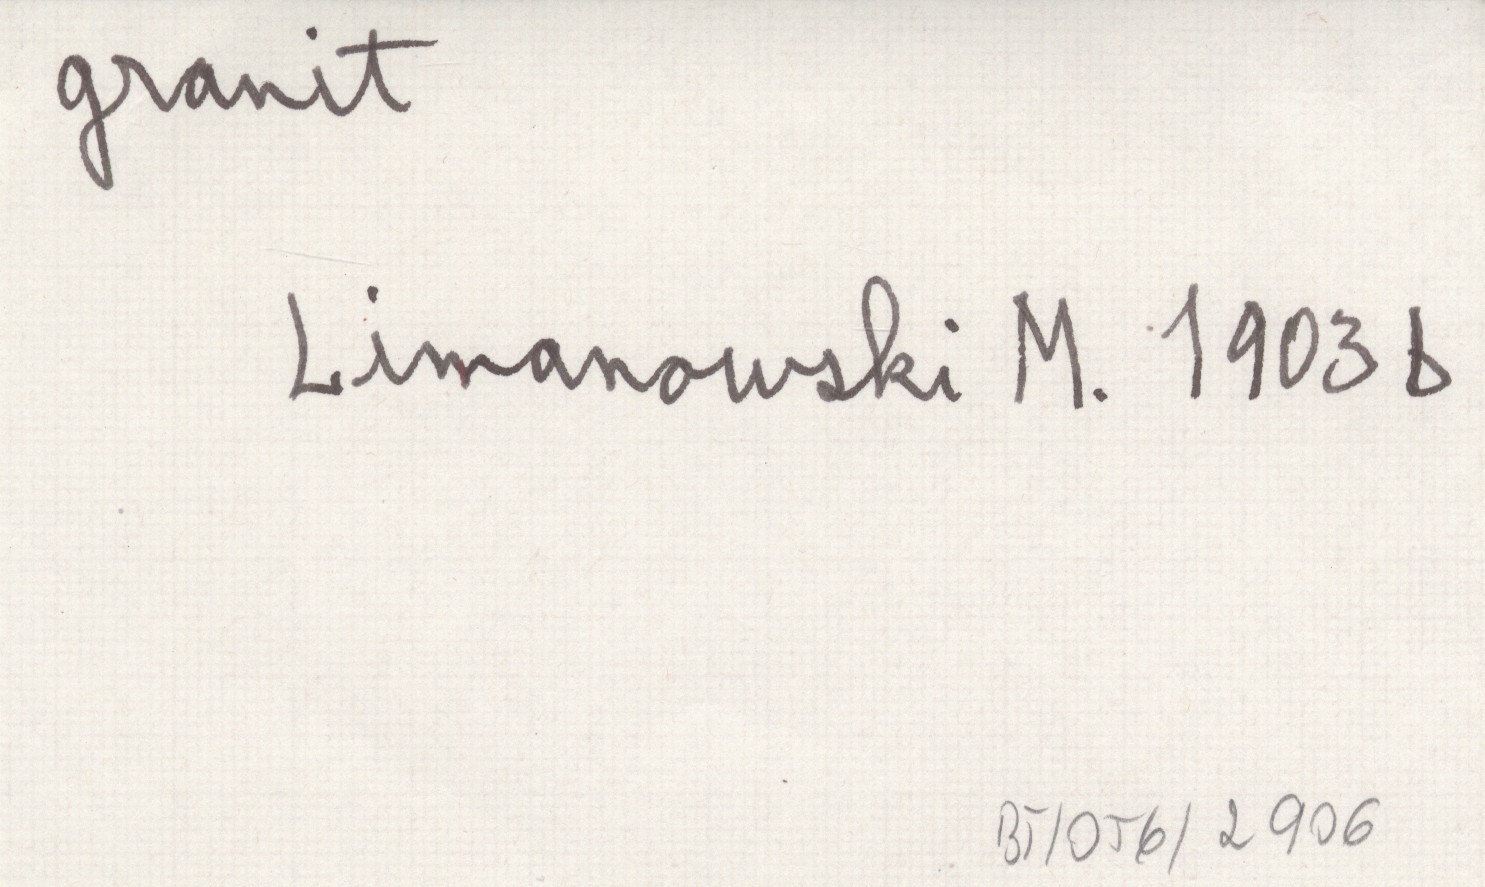 granit
Limanowski M. 1903 b
BT/056/2906